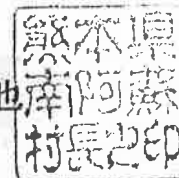 熊本県
也 阿蘇
村長之印